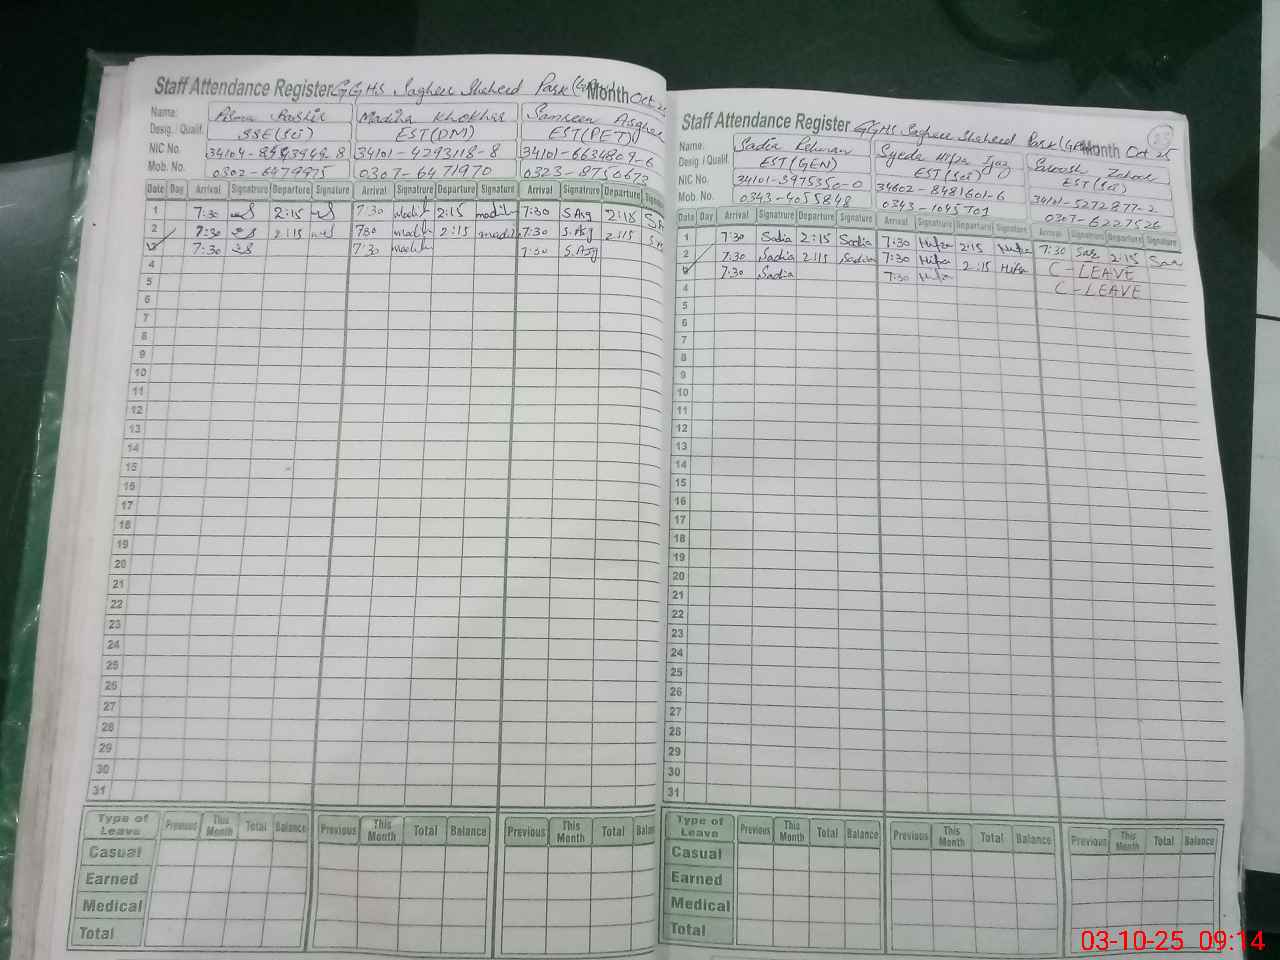 Staff Attendance Register GGHS Sagheer Shaheed Park Month Oct 25
Name: Asma Bashir Madiha Khokhar Samreen Asgher
Desig. Qualif. SSE(Sci) EST(DM) EST(PET)
NIC No. 34101-4293118-8 34101-6634809-6
Mob. No. 0302-6479975 0307-6471970 0323-8750673
Date Day Arrival Signatrure Departure Signature Arrival Signatrure Departure Signature Arrival Signatrure Departure
1 7:30 2:15 7:30 madih 2:15 madih 7:30 S.Asg 2:15
2 7:30 2:15 730 madih 2:15 madih 7:30 S.Asg 2:15
7:30 7:30 madih 7:30 S.Asg
4
5
6
7
8
9
10
11
12
13
14
15
16
17
18
19
20
21
22
23
24
25
26
27
28
29
30
31
Type of Leave Previous This Month Total Balance Previous This Month Total Balance Previous This Month Total
Casual
Earned
Medical
Total
Staff Attendance Register GGHS Sagheer Shaheed Park Month Oct 25
Name: Sadia Rehman Syeda Hifza Ijaz Zahoor
Desig. / Qualif. EST(GEN) EST(Sci) EST(Sci)
NIC No. 34101-3975350-0 34602-8481601-6 34101-5272877-2
Mob. No. 0343-4055848 0343-1045701 0307-6227526
Date Day Arrival Signature Departure Signature Arrival Signature Departure Signature Arrival Signature Departure Signature
1 7:30 Sadia 2:15 Sadia 7:30 Hifza 2:15 Hifza 7:30 2:15
2 7:30 Sadia 2:15 Sadia 7:30 Hifza 2:15 Hifza C-LEAVE
7:30 Sadia 7:30 Hifza C-LEAVE
4
5
6
7
8
9
10
11
12
13
14
15
16
17
18
19
20
21
22
23
24
25
26
27
28
29
30
31
Type of Leave Previous This Month Total Balance Previous This Month Total Balance Previous This Month Total Balance
Casual
Earned
Medical
Total
03-10-25 09:14